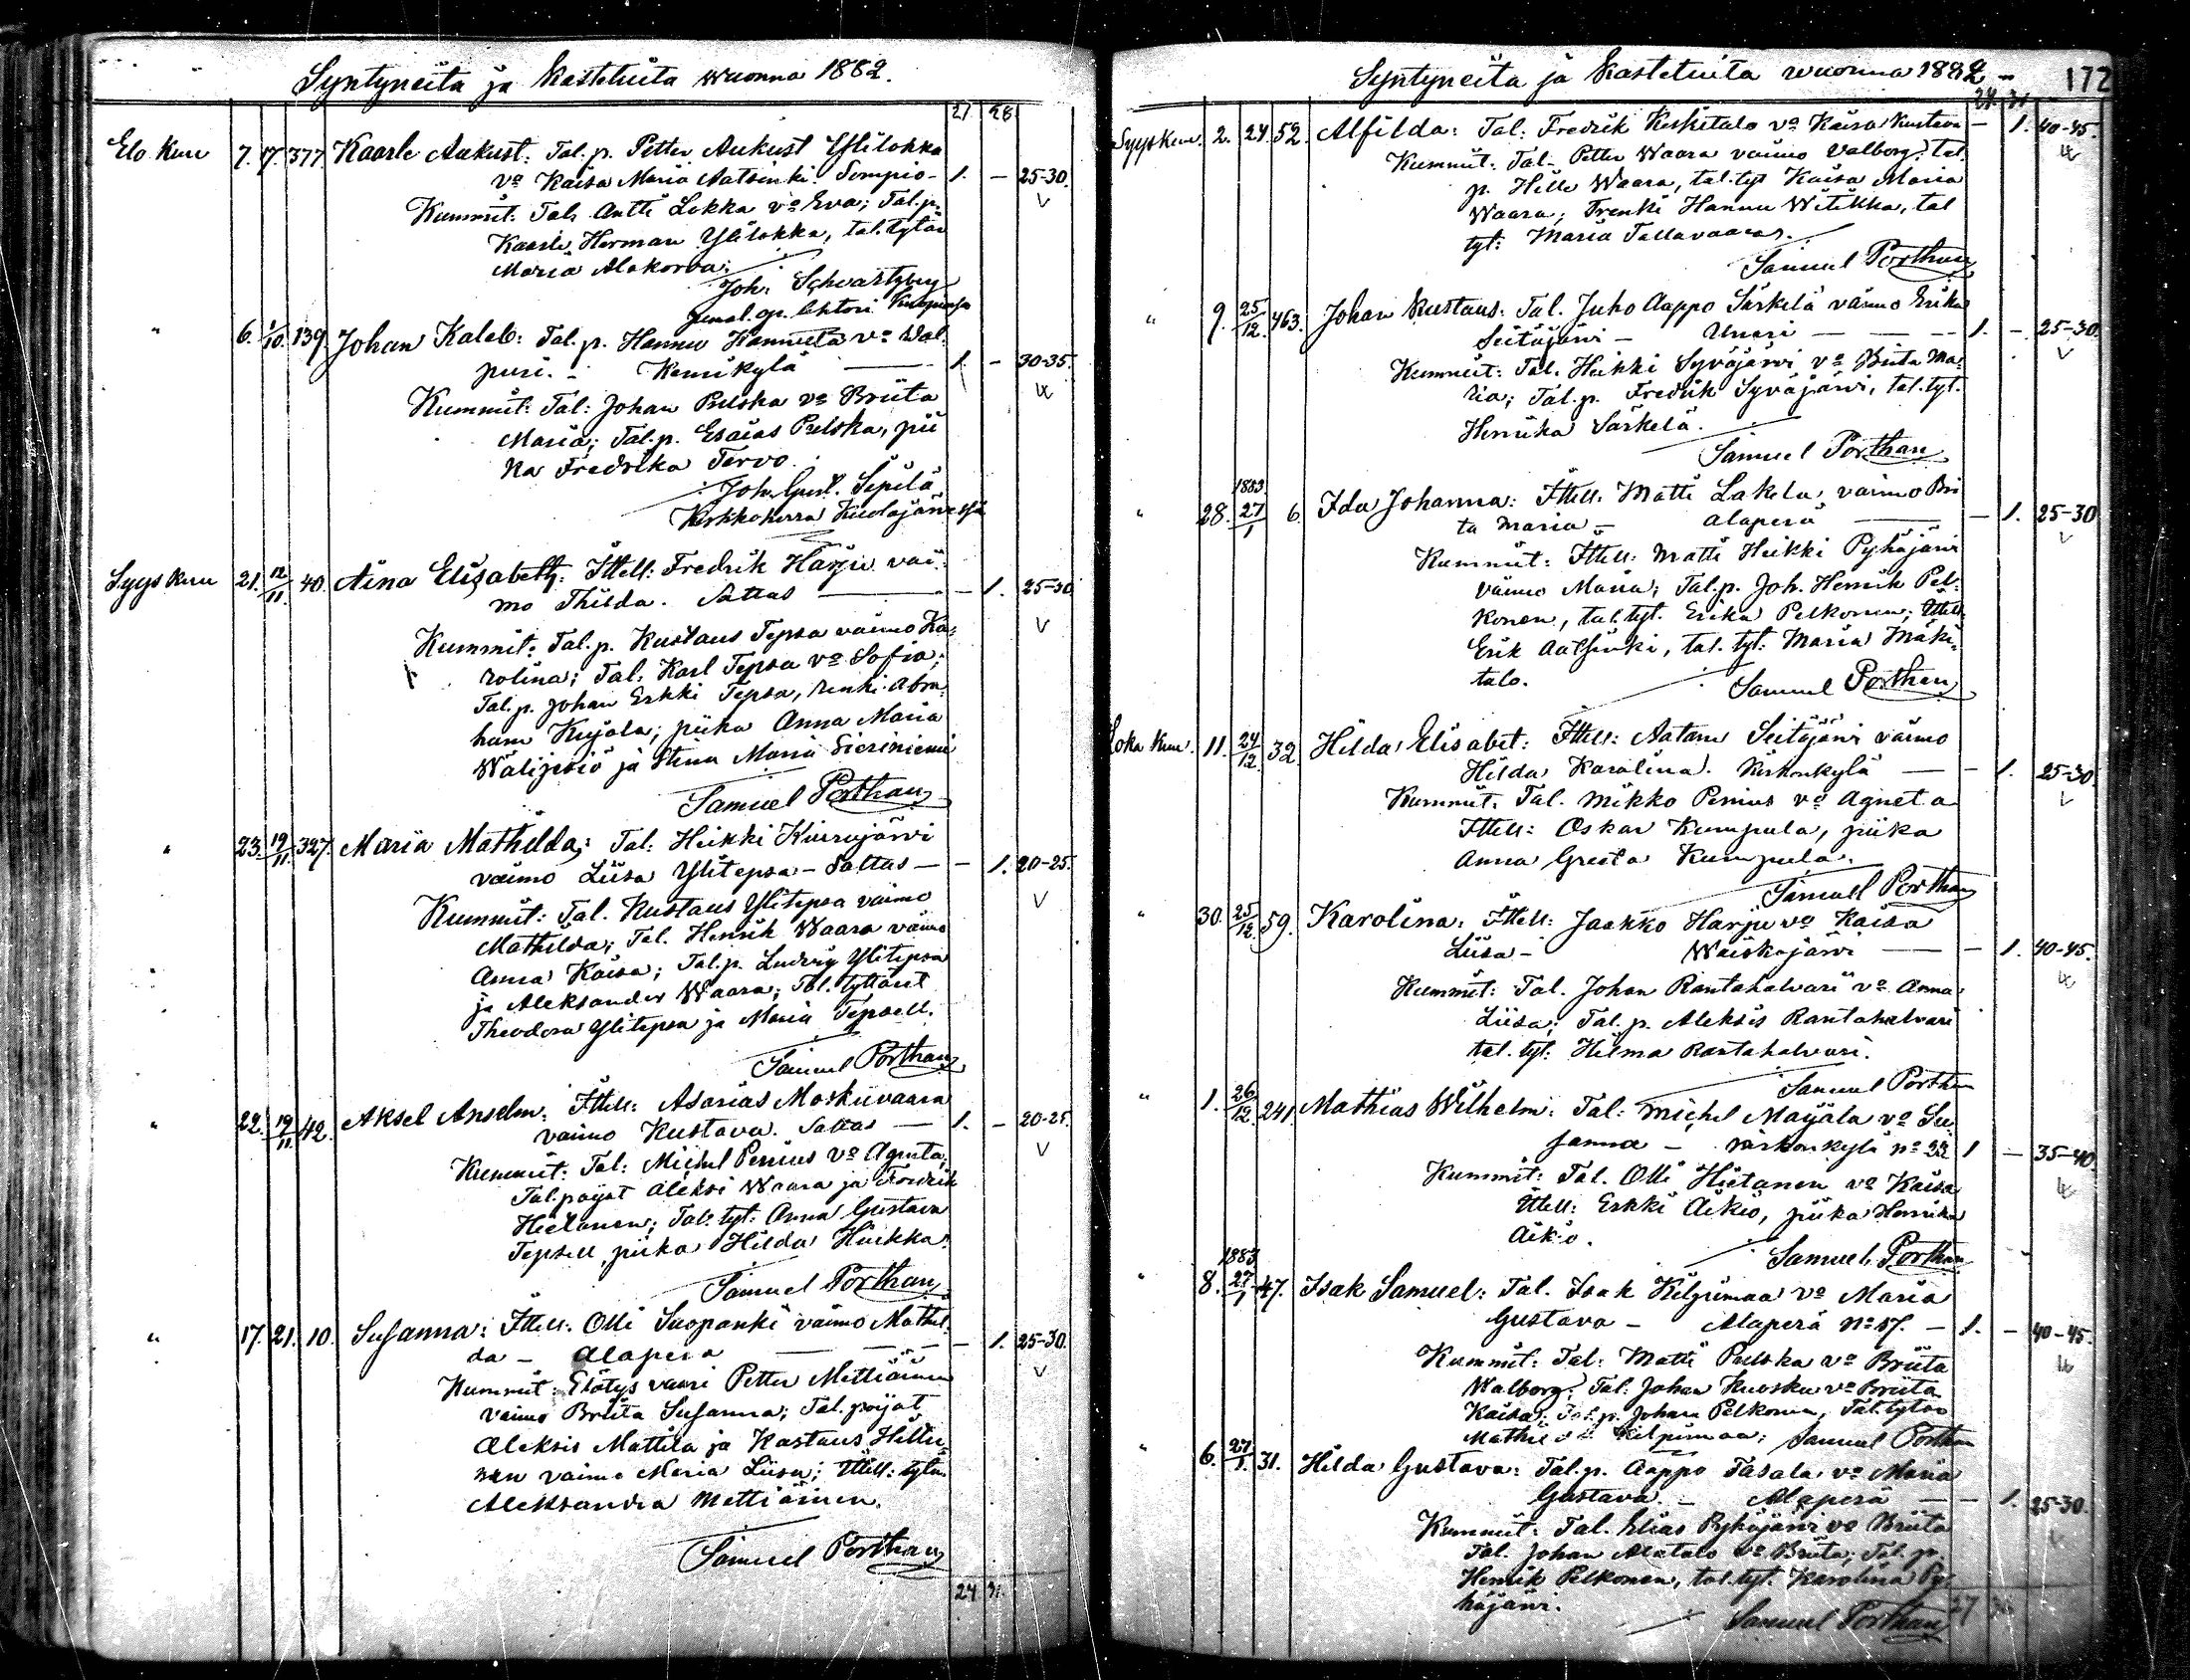 Syntyneitä ja kastetuita wuonna 1882.
27 28
Elo kuu 7. 17. 377 Kaarle Aukust: Tal. p. Petter Aukust Ylilokka
vo Kaisa Maria Aatsinki. Sompio - 1. - 25-30.
Kummit: Tal. Antti Lokka vo Eva; Tal. p.
Kaarle Herman Ylilokka, tal. tytär
Maria Alakorva;
Joh. Schwartzberg
" 6. 1/10. 139. Johan Kaleb: Tal. p. Hannu Hannula vo Wal-
puri. - Kemikylä 1. - 30-35.
Kummit: Tal: Johan Pulska vo Briita
Maria; Tal. p. Esaias Pulska, pii
ka Fredrika Tervo.
Joh. Gust. Sipilä
Kirkkoherra Kuolajärvessä
Syys kuu 21. 12/11. 40. Aina Elisabeth: Ittell: Fredrik Harju vai-
mo Thilda. Sattas - 1. 25-30
Kummit: Tal. p. Kustaus Tepsa vaimo Ka-
rolina; Tal. Karl Tepsa vo Sofia;
Tal. p. Johan Erkki Tepsa, renki Abra-
ham Kujala; piika Anna Maria
Walipesiö ja Stina Maria Sieriniemi
Samuel Porthan
" 23. 19/11. 327. Maria Mathilda: Tal: Heikki Kiirujärvi
vaimo Liisa Ylitepsa - Sattas - - 1. 20-25.
Kummit: Tal. Kustaus Ylitepsa vaimo
Mathilda; Tal. Henrik Waara vaimo
Anna Kaisa; Tal. p. Ludvig Ylitepsa
ja Aleksander Waara; Tal. tyttäret
Theodora Ylitepsa ja Maria Tepsell.
Samuel Porthan
" 22. 19/11. 42. Aksel Anselm: Ittell: Asarias Moskuvaara
vaimo Kustava. Sattas - 1. - 20-25.
Kummit: Tal: Michel Perius vo Agneta;
Tal. pojat Aleksi Waara ja Fredrik
Hietanen; Tal. tyt: Anna Gustava
Tepsell, piika Hilda Huikka.
Samuel Porthan
" 17. 21. 10. Susanna: Ittell. Olli Suopanki vaimo Mathil-
da - Alaperä - 1. 25-30.
Kummit: Elätys vaari Petter Mettiäinen
vaimo Briita Susanna; Tal. pojat
Aleksis Mattila ja Kustaus Hiltu-
nen vaimo Maria Liisa; Ittell: tytär
Aleksandra Mettiäinen.
Samuel Porthan
24 31.
Syntyneitä ja kastetuita wuonna 1882 - 172
24. 31
Syys kuu. 2. 24. 52. Alfilda: Tal: Fredrik Keskitalo vo Kaisa Kustava - 1. 40-45.
Kummit: Tal. Petter Waara vaimo Valborg; tal.
p. Hille Waara, tal. tyt Kaisa Maria
Waara; Trenki Hannu Witikka, tal
tyt: Maria Tallavaara.
Samuel Porthan
" 9. 25/12. 463. Johan Kustaus: Tal. Juho Aappo Särkelä vaimo Erika
Seitäjärvi - Unari - 1. - 25-30.
Kummit: Tal. Heikki Syväjärvi vo Briita Ma-
ria; Tal. p. Fredrik Syväjärvi, tal. tyt.
Henrika Särkelä.
Samuel Porthan
1883
" 28. 27/1 6. Ida Johanna: Ittell. Matti Lakela vaimo Bri
ta Maria - Alaperä - 1. 25-30
Kummit: Ittell: Matti Heikki Pyhäjärvi
vaimo Maria; Tal. p. Joh. Henrik Pel-
konen, tal. tyt. Erika Pelkonen; Ittell.
Erik Aatsinki, tal. tyt: Maria Mäki-
talo.
Samuel Porthan
Loka kuu. 11. 24/12. 32. Hilda Elisabet: Ittell: Aatam Seitajärvi vaimo
Hilda Karolina. Kirkonkylä - 1. 25-30
Kummit: Tal. Mikko Perius vo Agneta
Ittell: Oskar Kumpula, piika
Anna Greeta Kumpula.
Samuel Porthan
" 30. 25/12. 59. Karolina: Ittell: Jaakko Harju vo Kaisa
Liisa - Waiskojärvi - 1. 40-45.
Kummit: Tal. Johan Rantahalvari vo Anna
Liisa; Tal. p. Aleksis Rantahalvari
tal. tyt: Hilma Rantahalvari.
Samuel Porthan
" 1. 26/12. 241. Mathias Wilhelm: Tal: Michel Maijala vo Su-
sanna - Kirkonkylä no 22 1 - 35-40
Kummit: Tal. Olli Hietanen vo Kaisa
Ittell: Erkki Aikio, piika Henrika
Aikio.
Samuel Porthan
1883
" 8. 27/1 47. Isak Samuel: Tal. Isak Kilpimaa vo Maria
Gustava - Alaperä No 57. - 1. - 40-45.
Kummit: Tal: Matti Pulska vo Briita
Walborg; Tal: Johan Kuosku vo Briita
Kaisa; Tal. p. Johan Pelkonen, Tal. tytär
Kilpimaa; Samuel Porthan
" 6. 27/1. 31. Hilda Gustava: Tal. p. Aappo Tasala vo Maria
Gustava. - Alaperä - 1. 25-30.
Kummit: Tal. Elias Pyhäjärvi vo Briita
Tal. Johan Alatalo vo Briita; Tal. p.
Henrik Pelkonen, tal. tyt. Karolina Py-
häjärvi.
Samuel Porthan